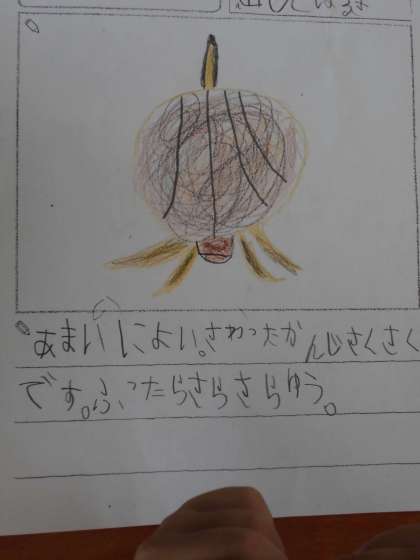 あまいによい。さわったかんじさくさく
です。ふったらさらさらゆう。